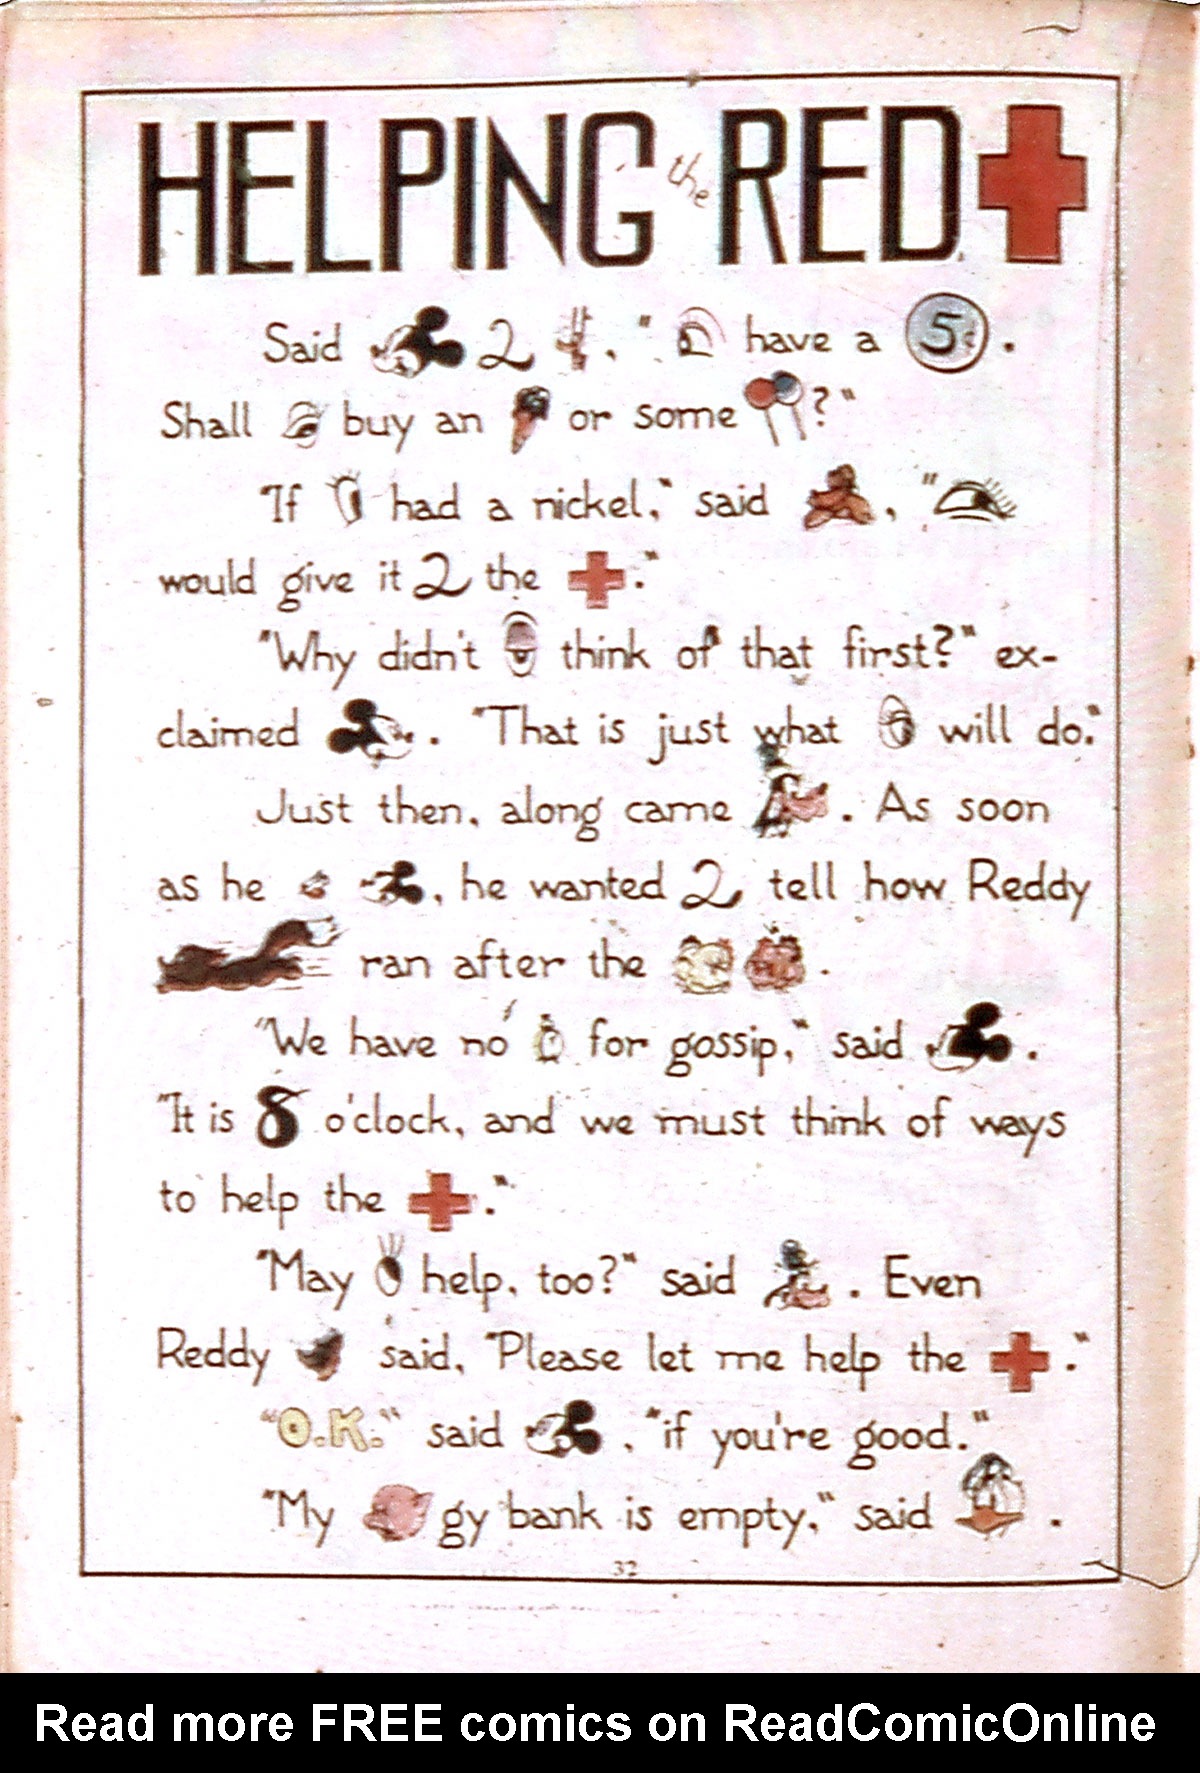 HELPING the RED
Said 2 , " have a 5¢ .
Shall buy an or some ?"
"If had a nickel," said , "
would give it 2 the ."
"Why didn't think of that first?" ex-
claimed . "That is just what will do."
Just then, along came . As soon
as he , he wanted 2 tell how Reddy
ran after the .
"We have no for gossip," said .
"It is 8 o'clock, and we must think of ways
to help the ."
"May help, too?" said . Even
Reddy said, "Please let me help the ."
"O.K." said , "if you're good."
"My gy bank is empty," said .
32
Read more FREE comics on ReadComicOnline